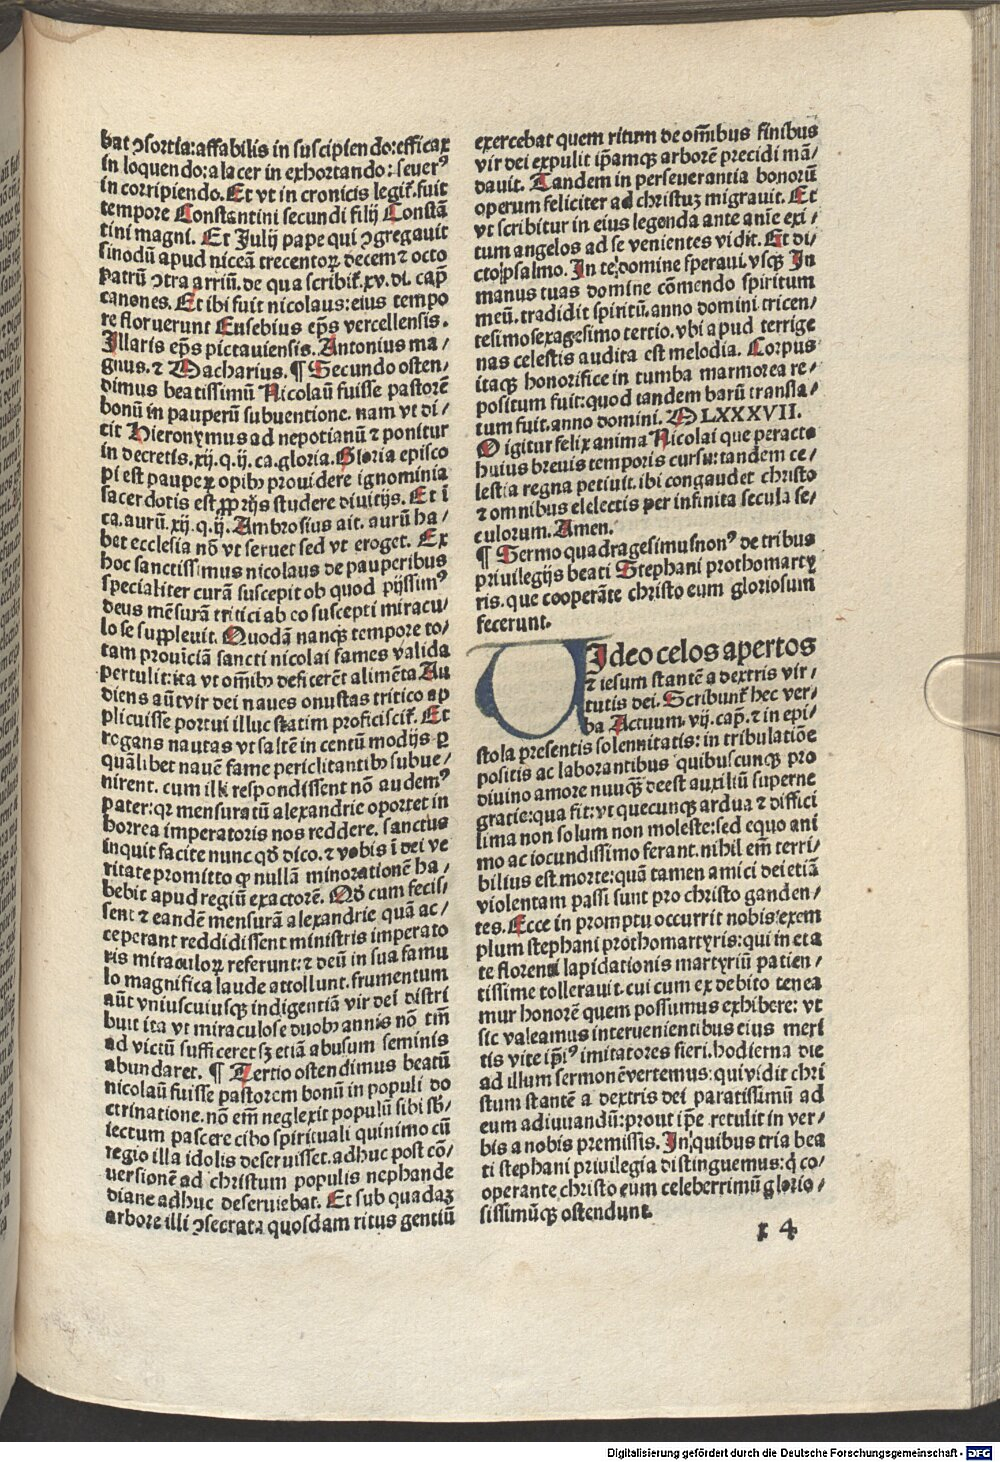 bat ꝯsortia:affabilis in suscipiendo:efficax
in loquendo:alacer in exhortando:seuerꝰ
in corripiendo. Et vt in cronicis legit᷑.fuit
tempore Constantini secundi filij Constā
tini magni. Et Julij pape qui ꝯgregauit
sinodū apud niceā trecentoꝝ decem ⁊ octo
patrū ↄtra arriū.de qua scribit᷑.xv.di. cap̄
canones. Et ibi fuit nicolaus:eius tempo
re floruerunt Eusebius ep̄s vercellensis.
Illaris ep̄s pictauiensis. Antonius ma/
gnus.⁊ Macharius. ¶ Secundo osten/
dimus beatissimū Nicolaū fuisse pastorē
bonū in pauperū subuentione. nam vt di/
cit Hieronymus ad nepotianū ⁊ ponitur
in decretis.xij.q.ij. ca.gloria. Gloria episco
pi est pauperꝝ opibꝰ prouidere ignominia
sacerdotis est ꝓprijs studere diuitijs. Et ī
ca.aurū.xij.q.ij. Ambrosius ait. aurū ha/
bet ecclesia nō vt seruet sed vt eroget. Ex
hoc sanctissimus nicolaus de pauperibus
specialiter curā suscepit ob quod pijssimꝰ
deus mēsurā tritici ab eo suscepti miracu/
lose suppleuit. Quodā nanqꝫ tempore to/
tam prouīciā sancti nicolai fames valida
pertulit:ita vt om̄ibꝰ deficerēt alimēta Au
diens aūt vir dei naues onustas tritico ap
plicuisse portui illuc statim proficiscit᷑. Et
rogans nautas vt saltē in centū modijs ꝑ
quālibet nauē fame periclitantibꝰ subue/
nirent. cum illi respondissent nō audemꝰ
pater:qꝛ mensuratū alexandrie oportet in
horrea imperatoris nos reddere. sanctus
inquit facite nunc qd̄ dico.⁊ vobis ī dei ve
ritate promitto ꝙ nullā minorationē ha/
bebit apud regiū exactorē. Qd̄ cum fecis/
sent ⁊ eandē mensurā alexandrie quā ac/
ceperant reddidissent ministris imperato
ris miraculoꝝ referunt:⁊ deū in sua famu
lo magnifica laude attollunt.frumentum
aūt vniuscuiusqꝫ indigentiā vir dei distri
buit ita vt miraculose duobꝰ annis nō tm̄
ad victū sufficeret sꝫ etiā ab usum seminis
abundaret. ¶ Tertio ostendimus beatū
nicolaū fuisse pastorem bonū in populi do
ctrinatione.nō em̄ neglexit populū sibi sb̄/
iectum pascere cibo spirituali quinimo cū
regio illa idolis deseruisset.adhuc post cō/
uersionē ad christum populis nephande
diane adhuc deseruiebat. Et sub quadaꝫ
arbore illi ↄsecrata quosdam ritus gentiū
exercebat quem ritum de om̄ibus finibus
vir dei expulit ip̄amqꝫ arborē precidi mā/
dauit. Tandem in perseuerantia bonorū
operum feliciter ad christuꝫ migrauit. Et
vt scribitur in eius legenda ante anīe exi/
tum angelos ad se venientes vidit. Et di/
cto psalmo. In te domine speraui.vsqꝫ In
manus tuas domine cōmendo spiritum
meū.tradidit spiritū.anno domini tricen/
tesimosexagesimo tertio.vbi apud terrige
nas celestis audita est melodia. Corpus
itaqꝫ honorifice in tumba marmorea re/
positum fuit:quod tandem barū transla/
tum fuit.anno domini. M LXXXVII.
O igitur felix anima Nicolai que peracto
huius breuis temporis cursu:tandem ce/
lestia regna petiuit.ibi congaudet christo
⁊ omnibus elelectis per infinita secula se/
culorum. Amen.
¶ Sermo quadragesimusnonꝰ de tribus
priuilegijs beati Stephani prothomarty
ris.que cooperāte christo eum gloriosum
fecerunt.
VIdeo celos apertos
⁊ iesum stantē a dextris vir/
tutis dei. Scribunt᷑ hec ver/
ba Actuum.vij.cap̄.⁊ in epi/
stola presentis solennitatis:in tribulatiōe
positis ac laborantibus quibuscunqꝫ pro
diuino amore nunqꝫ̄ deest auxiliū superne
gratie:qua fit:vt quecunqꝫ ardua ⁊ diffici
lima non solum non moleste:sed equo ani
mo ac iocundissimo ferant.nihil em̄ terri/
bilius est morte:quā tamen amici dei etiā
violentam passi sunt pro christo gauden/
tes. Ecce in promptu occurrit nobis exem
plum stephani prothomartyris:qui in eta
te florenti lapidationis martyriū patien/
tissime tollerauit.cui cum ex debito tenea
mur honorē quem possumus exhibere: vt
sic valeamus interuenientibus eius meri
tis vite ip̄iꝰ imitatores fieri.hodierna die
ad illum sermonē vertemus:qui vidit chri
stum stantē a dextris dei paratissimū ad
eum adiuuandū:prout ip̄e retulit in ver/
bis a nobis premissis. In quibus tria bea
ti stephani priuilegia distinguemus:q̄ co/
operante christo eum celeberrimū glorio/
sissimūqꝫ ostendunt.
r 4
Digitalisierung gefördert durch die Deutsche Forschungsgemeinschaft - DFG